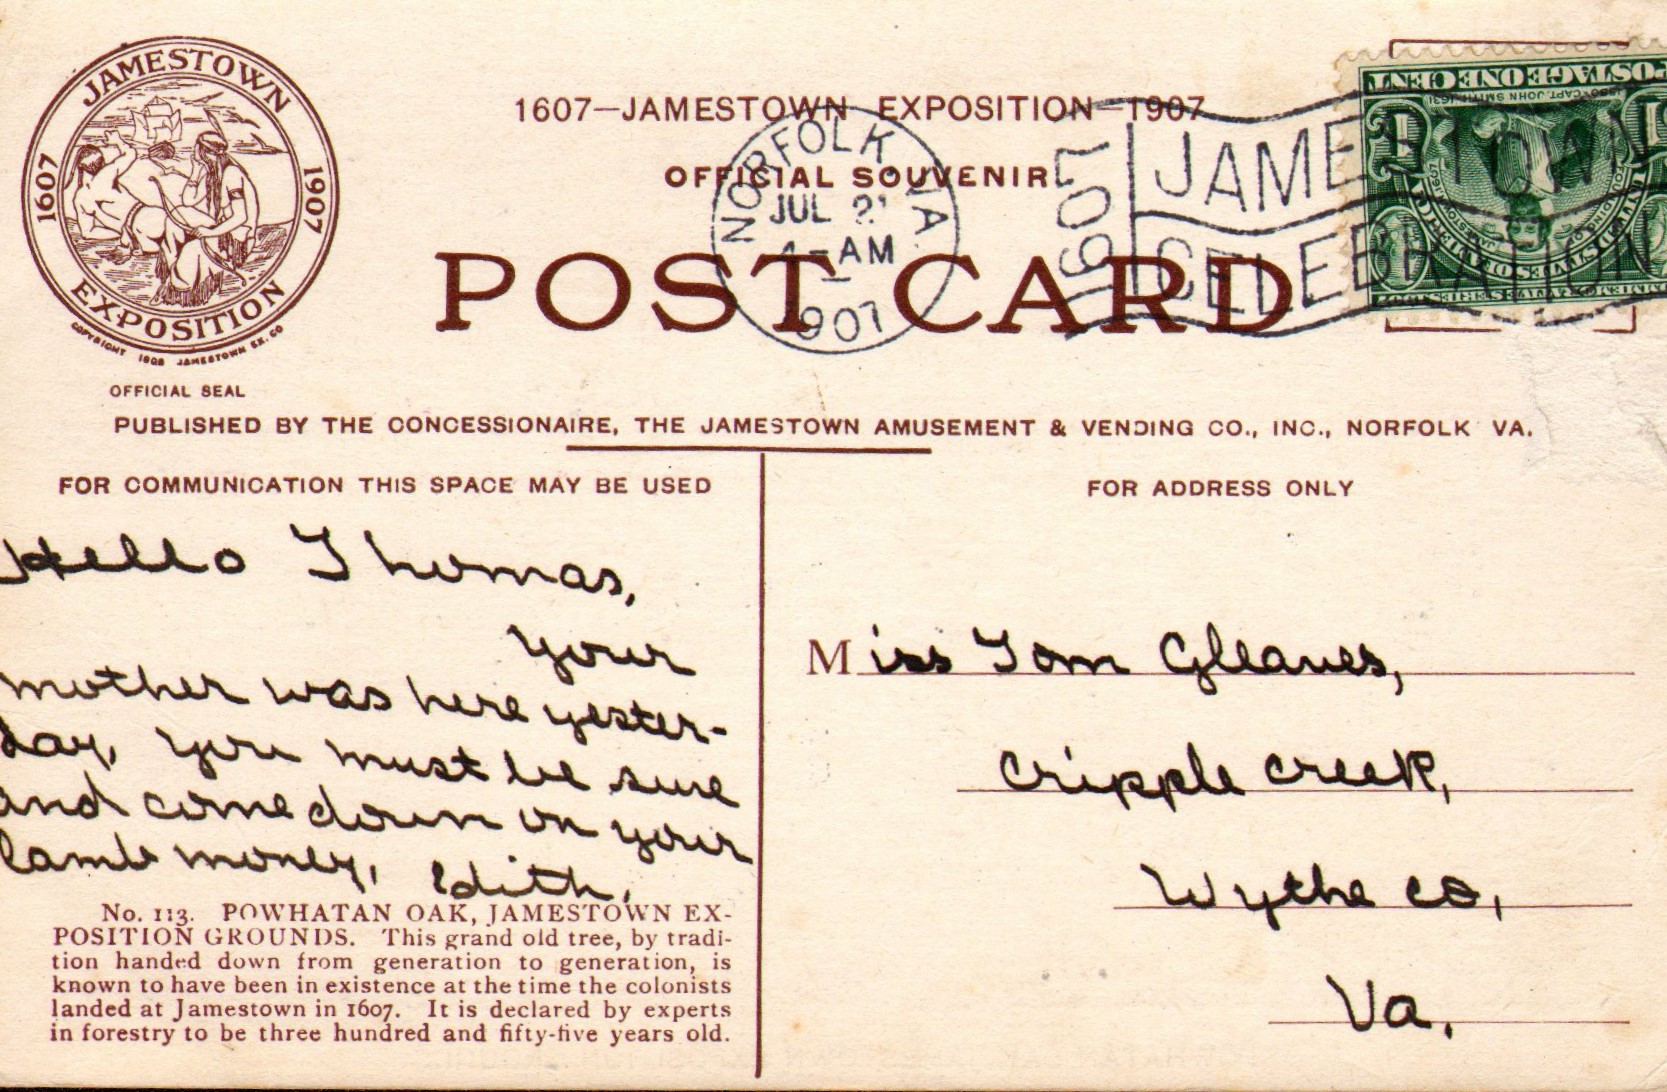 JAMESTOWN
1607 1907
EXPOSITION
COPYRIGHT 1906 JAMESTOWN EX. CO
OFFICIAL SEAL
1607—JAMESTOWN EXPOSITION—1907
OFFICIAL SOUVENIR
POST CARD
NORFOLK VA.
JUL 21
AM
1907
1907
JAMESTOWN
CELEBRATION
POSTAGE ONE CENT
1580·CAPT. JOHN SMITH·1631
FOUNDING OF JAMESTOWN 1607
UNITED STATES OF AMERICA
COMMEMORATIVE SERIES 1907
PUBLISHED BY THE CONCESSIONAIRE, THE JAMESTOWN AMUSEMENT & VENDING CO., INC., NORFOLK VA.
FOR COMMUNICATION THIS SPACE MAY BE USED
Hello Thomas,
your
mother was here yester-
day, you must be sure
and come down on your
lamb money, Edith.
No. 113. POWHATAN OAK, JAMESTOWN EX-
POSITION GROUNDS. This grand old tree, by tradi-
tion handed down from generation to generation, is
known to have been in existence at the time the colonists
landed at Jamestown in 1607. It is declared by experts
in forestry to be three hundred and fifty-five years old.
FOR ADDRESS ONLY
Miss Tom Gleaves,
Cripple Creek,
Wythe Co,
Va.